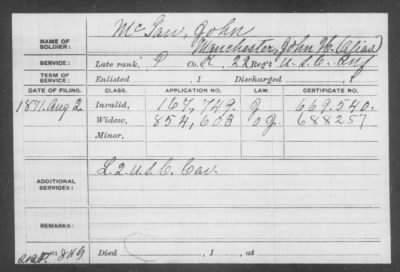 NAME OF SOLDIER: McGaw, John
Manchester, John H. (Alias)
SERVICE: Late rank, P Co. K, 22 Reg't U.S.C. Inf
TERM OF SERVICE: Enlisted , 1 Discharged , 1
DATE OF FILING. CLASS. APPLICATION NO. LAW. CERTIFICATE NO.
1871. Aug 2 Invalid, 167,749. 669.540.
Widow, 854,603 688257
Minor,
ADDITIONAL SERVICES: L. 2 U.S.C. Cav.
REMARKS:
Died , 1 , at